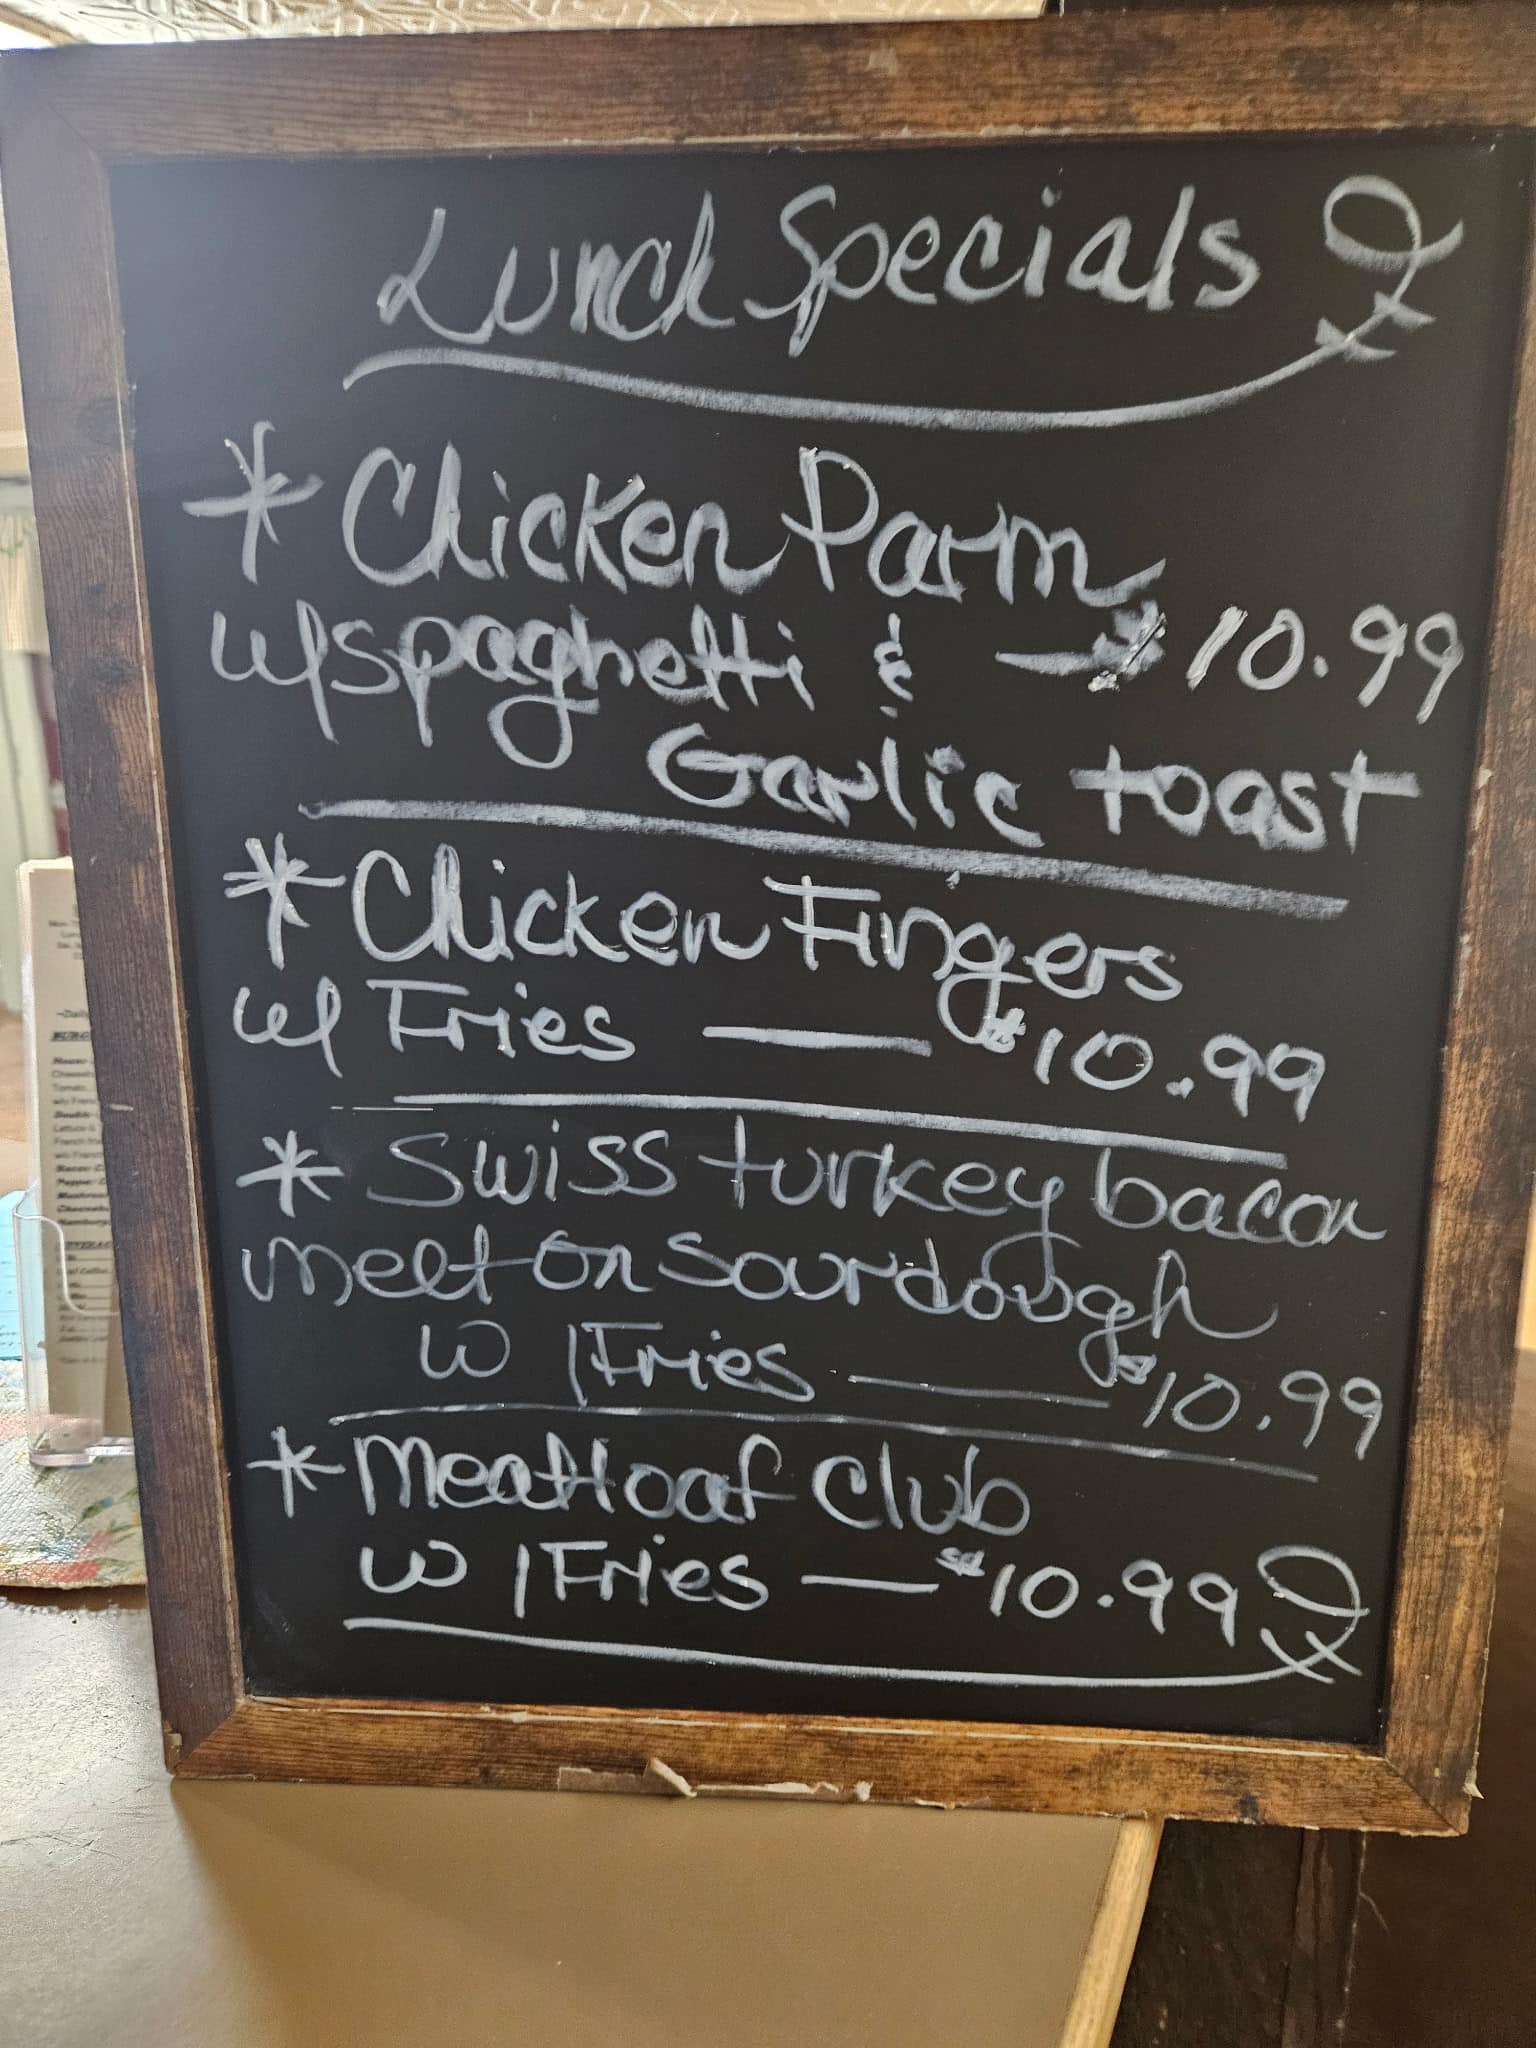 Lunch Specials
* Chicken Parm
w/spaghetti & — $10.99
Garlic toast
* Chicken Fingers
w/ Fries — $10.99
* Swiss turkey bacon
melt on Sourdough
w/Fries — $10.99
* Meatloaf club
w/Fries — $10.99